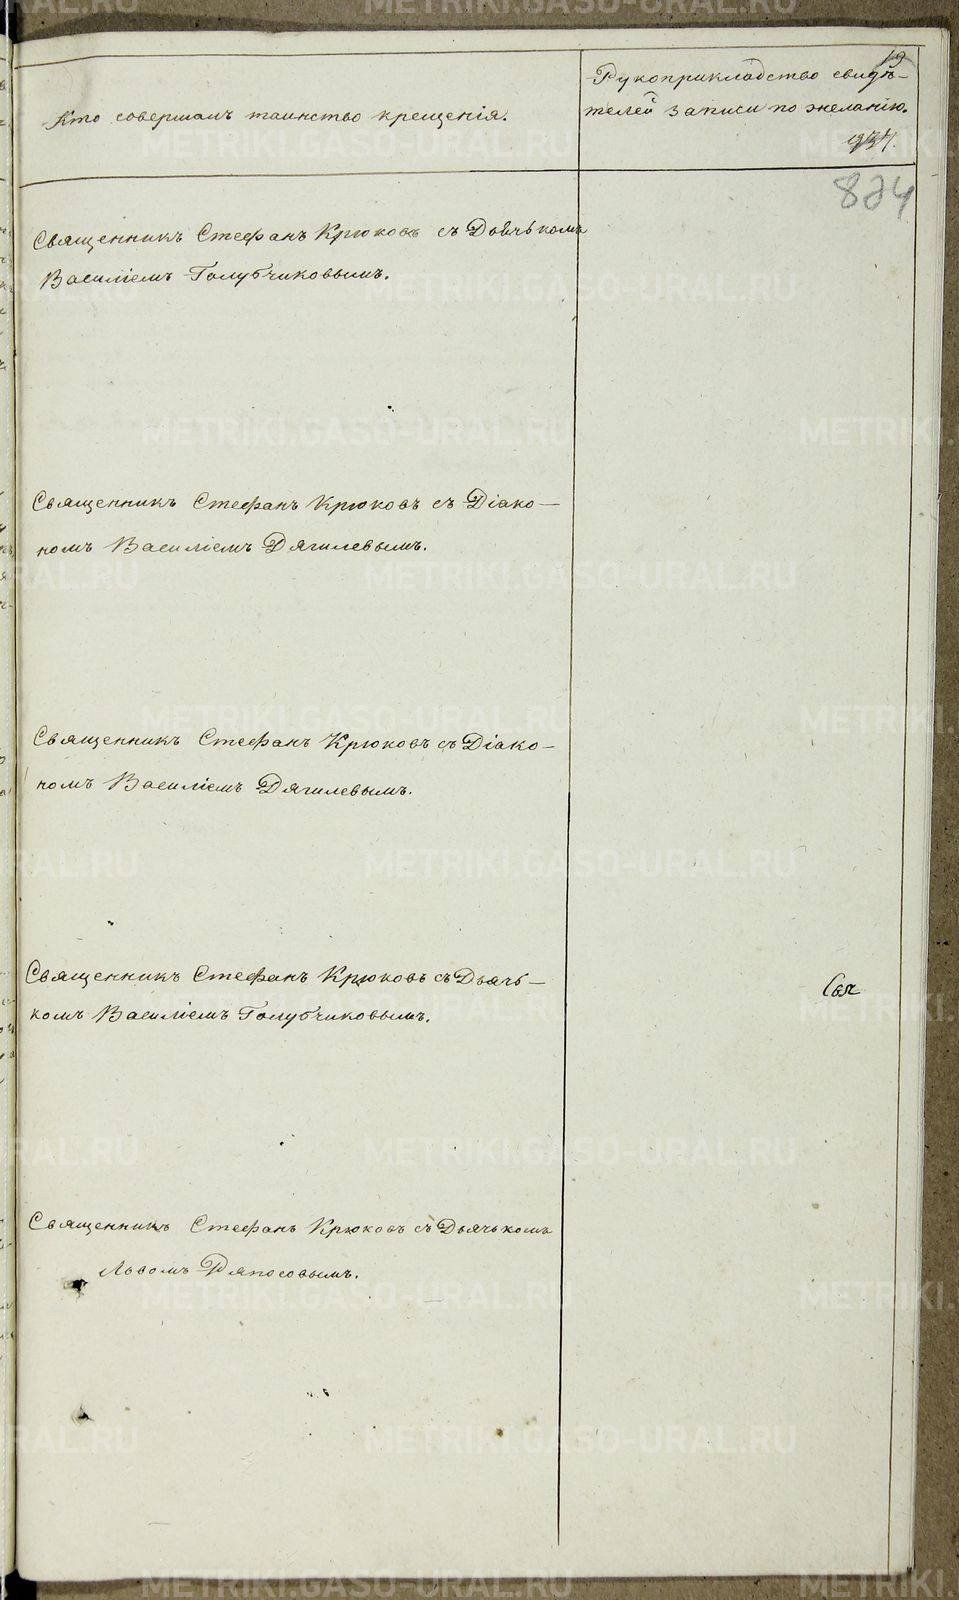 19
Рукоприкладство свидѣ-
телей записи по желанію.
Кто совершалъ таинство крещенія.
934.
824
Священникъ Стефанъ Крюковъ съ Дьячькомъ
Василіемъ Голубчиковымъ.
Священникъ Стефанъ Крюковъ съ Діако-
номъ Василіемъ Дягилевымъ.
Священникъ Стефанъ Крюковъ съ Діако-
номъ Василіемъ Дягилевымъ.
Священникъ Стефанъ Крюковъ съ Дьячь-
комъ Василіемъ Голубчиковымъ.
Свя
Священникъ Стефанъ Крюковъ съ Дьячькомъ
Львомъ Ряпосовымъ.
METRIKI.GASO-URAL.RU